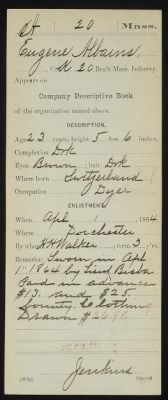 A 20 Mass.
Eugene Albains,
, Co. K 20 Reg't Mass. Infantry.
Appears on
Company Descriptive Book
of the organization named above.
DESCRIPTION.
Age 23 years; height 5 feet 6 inches.
Complexion Drk
Eyes Brown; hair Drk
Where born Switzerland
Occupation Dyer
ENLISTMENT.
When Apl 1, 1864
Where Dorchester
By whom H A Walker; term 3 y'rs.
Remarks: Sworn in Apl
1" 1864 by Lieut
Paid in advance
$13. and $25.
bounty. Clothing
Drawn $26.98
Jenkins